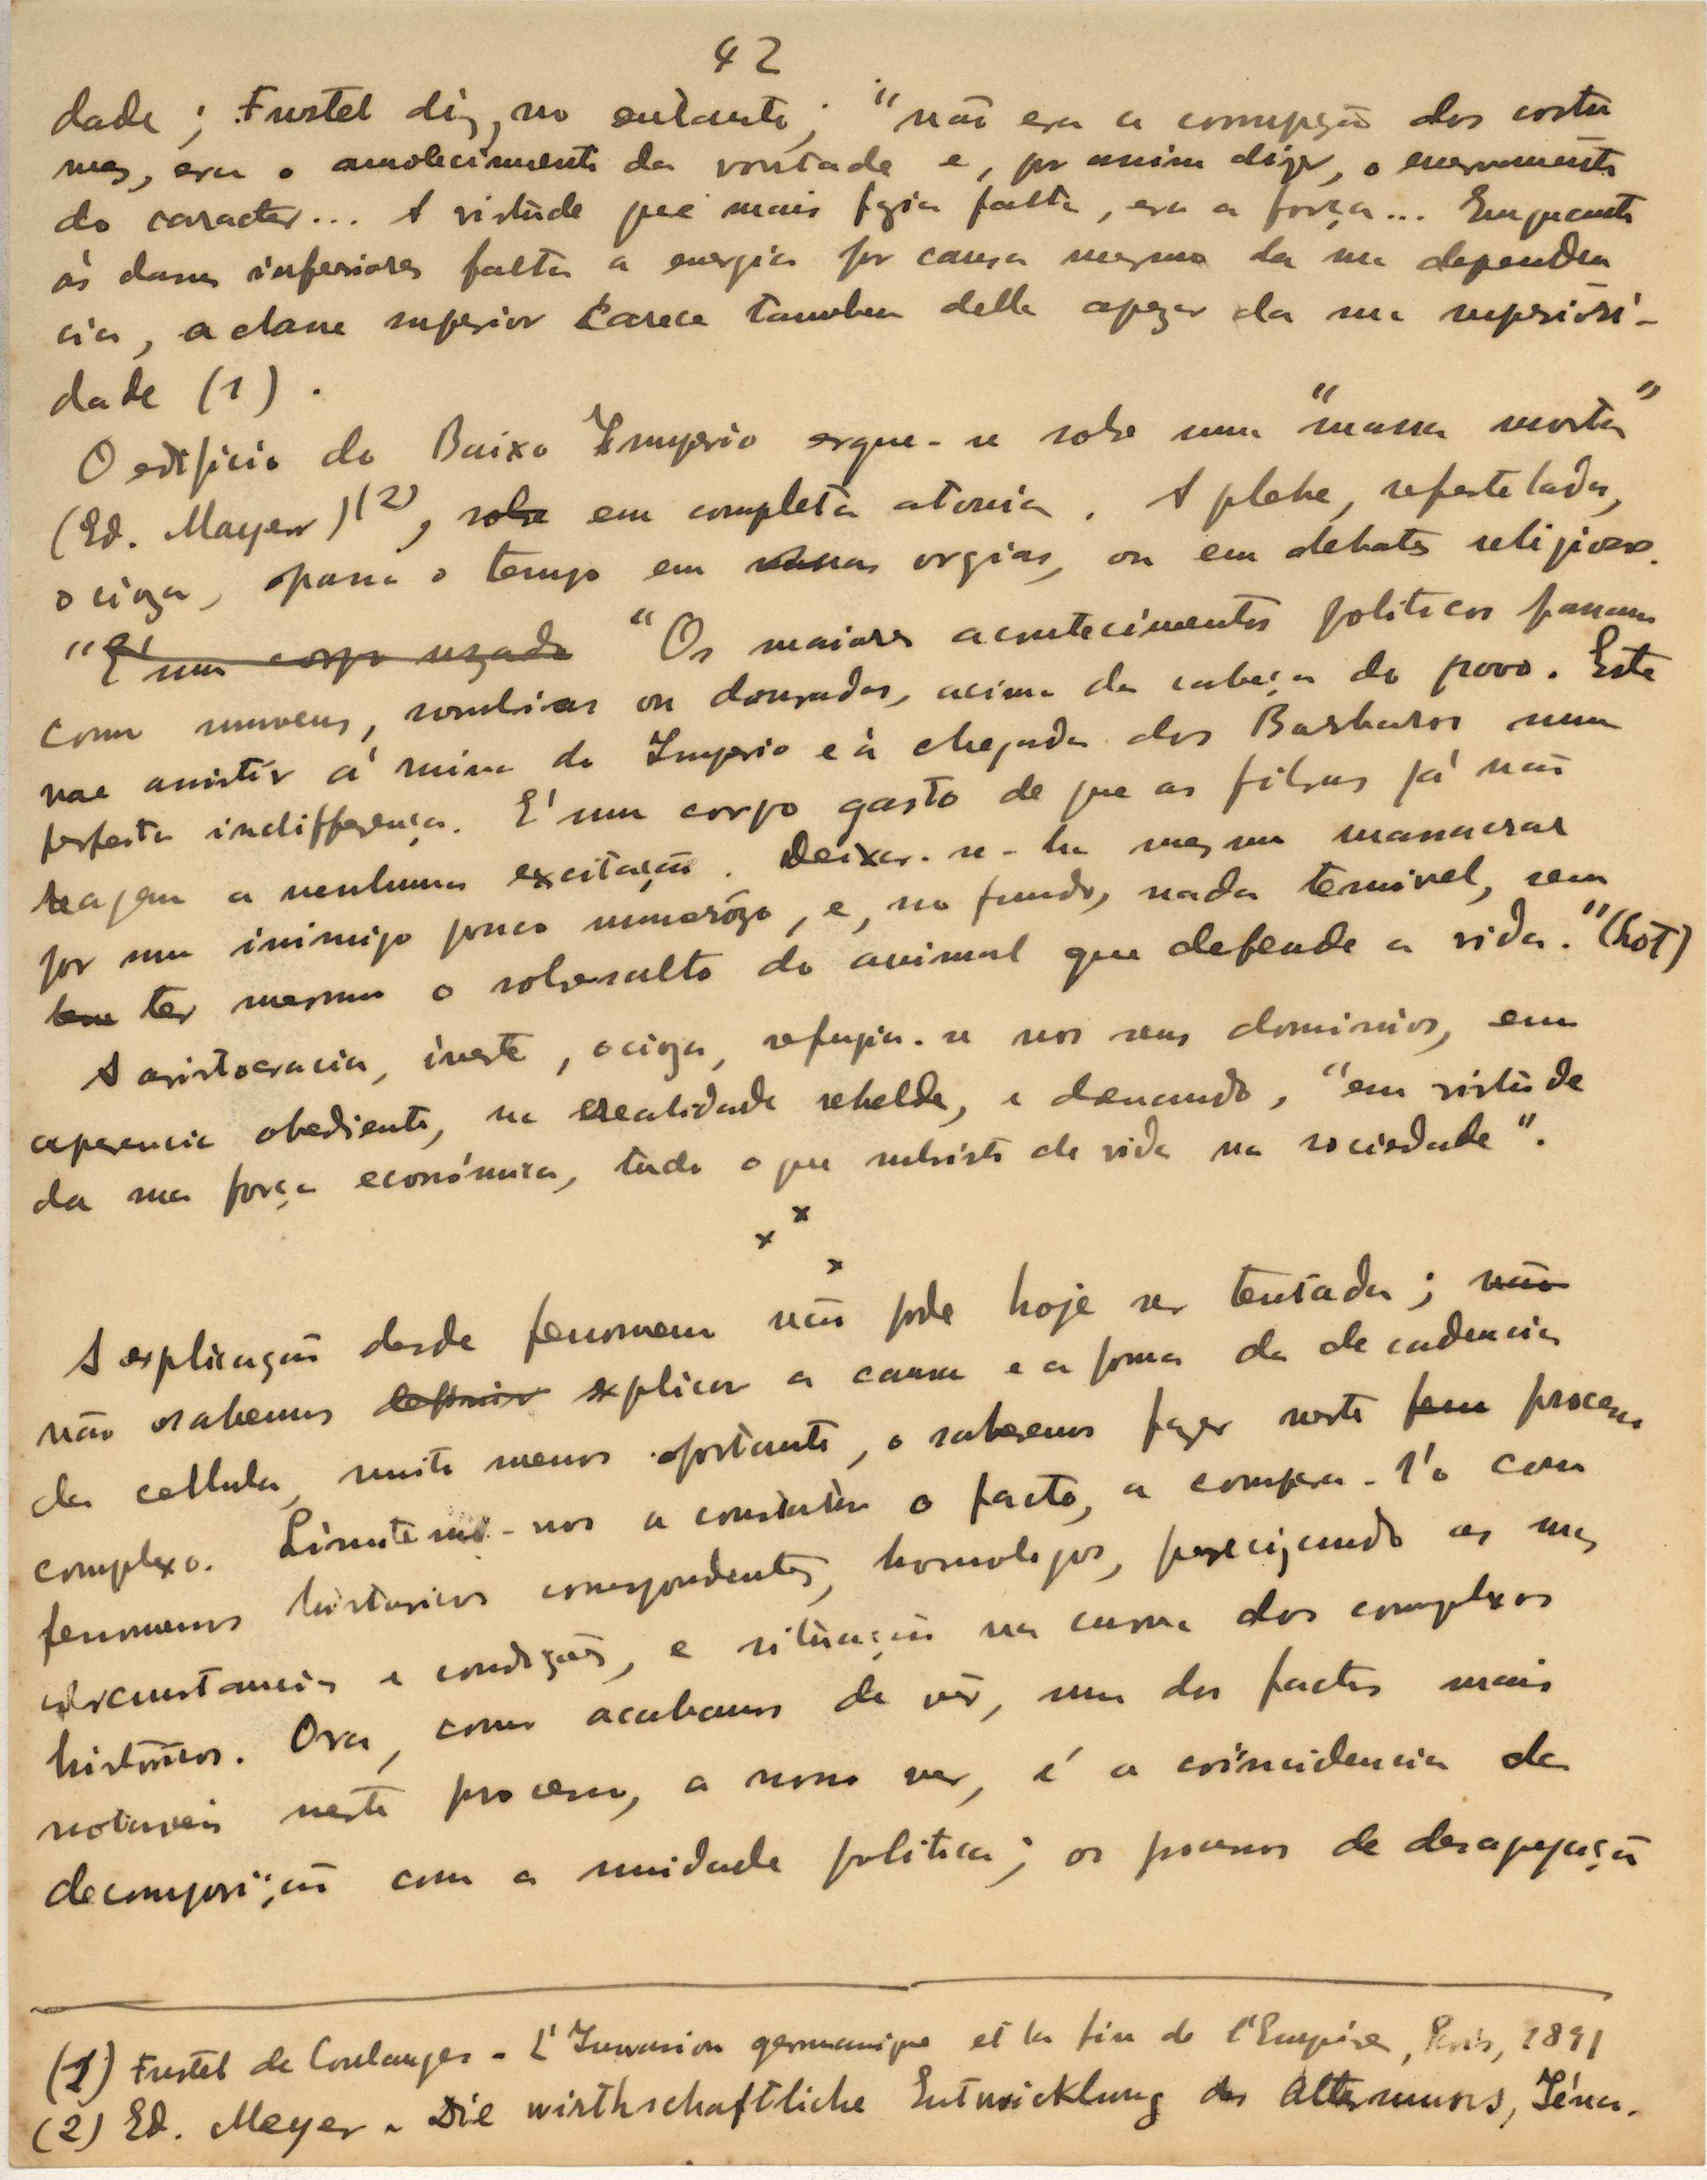 42
dade; Fustel diz, no entanto; "não era a corrupção dos costu
mes, era o amolecimento da vontade e, por assim dizer, o enervamento
do caracter... A virtude que mais fazia falta, era a força... Emquanto
ás classes inferiores falta a energia por causa mesmo da sua dependen
cia, a classe superior carece tambem della apezar da sua superiori-
dade (1).
O edificio do Baixo Imperio ergue-se sobre uma "massa morta"
(Ed. Mayer)(2), sobre em completa atonia. A plebe, refestelada,
ocioza, passa o tempo em orgias, ou em debates religiosos.
"E' um corpo uzado "Os maiores acontecimentos politicos passam
como nuvens, sombrias ou douradas, acima da cabeça do povo. Este
vae assistir á ruina do Imperio e á chegada dos Barbaros numa
perfeita indifferença. E' um corpo gasto de que as fibras já não
reagem a nenhuma excitação. Deixar-se-ha mesmo massacrar
por um inimigo pouco numerózo, e, no fundo, nada temivel, sem
tem ter mesmo o sobresalto do animal que defende a vida." (Lot)
A aristocracia, inerte, ocioza, refugia-se nos seus dominios, em
aparencia obediente, na realidade rebelde, e "em virtude
da sua força económica, tudo o que subsiste de vida na sociedade".
x x
x
A explicação deste fenomeno não pode hoje ser tentada; não
não sabemos definir explicar a causa e a forma da decadencia
da cellula, muito menos portanto, o saberemos fazer neste processo
complexo. Limitemo-nos a constatar o facto, a compara-l'o com
fenomenos historicos correspondentes, homologos, precizando as suas
circunstancias e condições, e situação na curva dos complexos
historicos. Ora, como acabamos de vêr, um dos factos mais
notaveis neste processo, a nosso ver, é a coincidencia da
decomposição com a unidade politica; os processos de desagregação
(1) Fustel de Coulanges - L'Invasion germanique et la fin de l'Empire, Paris, 1891
(2) Ed. Meyer - Die wirthschaftliche Entwicklung des Altermuns, Iéna.